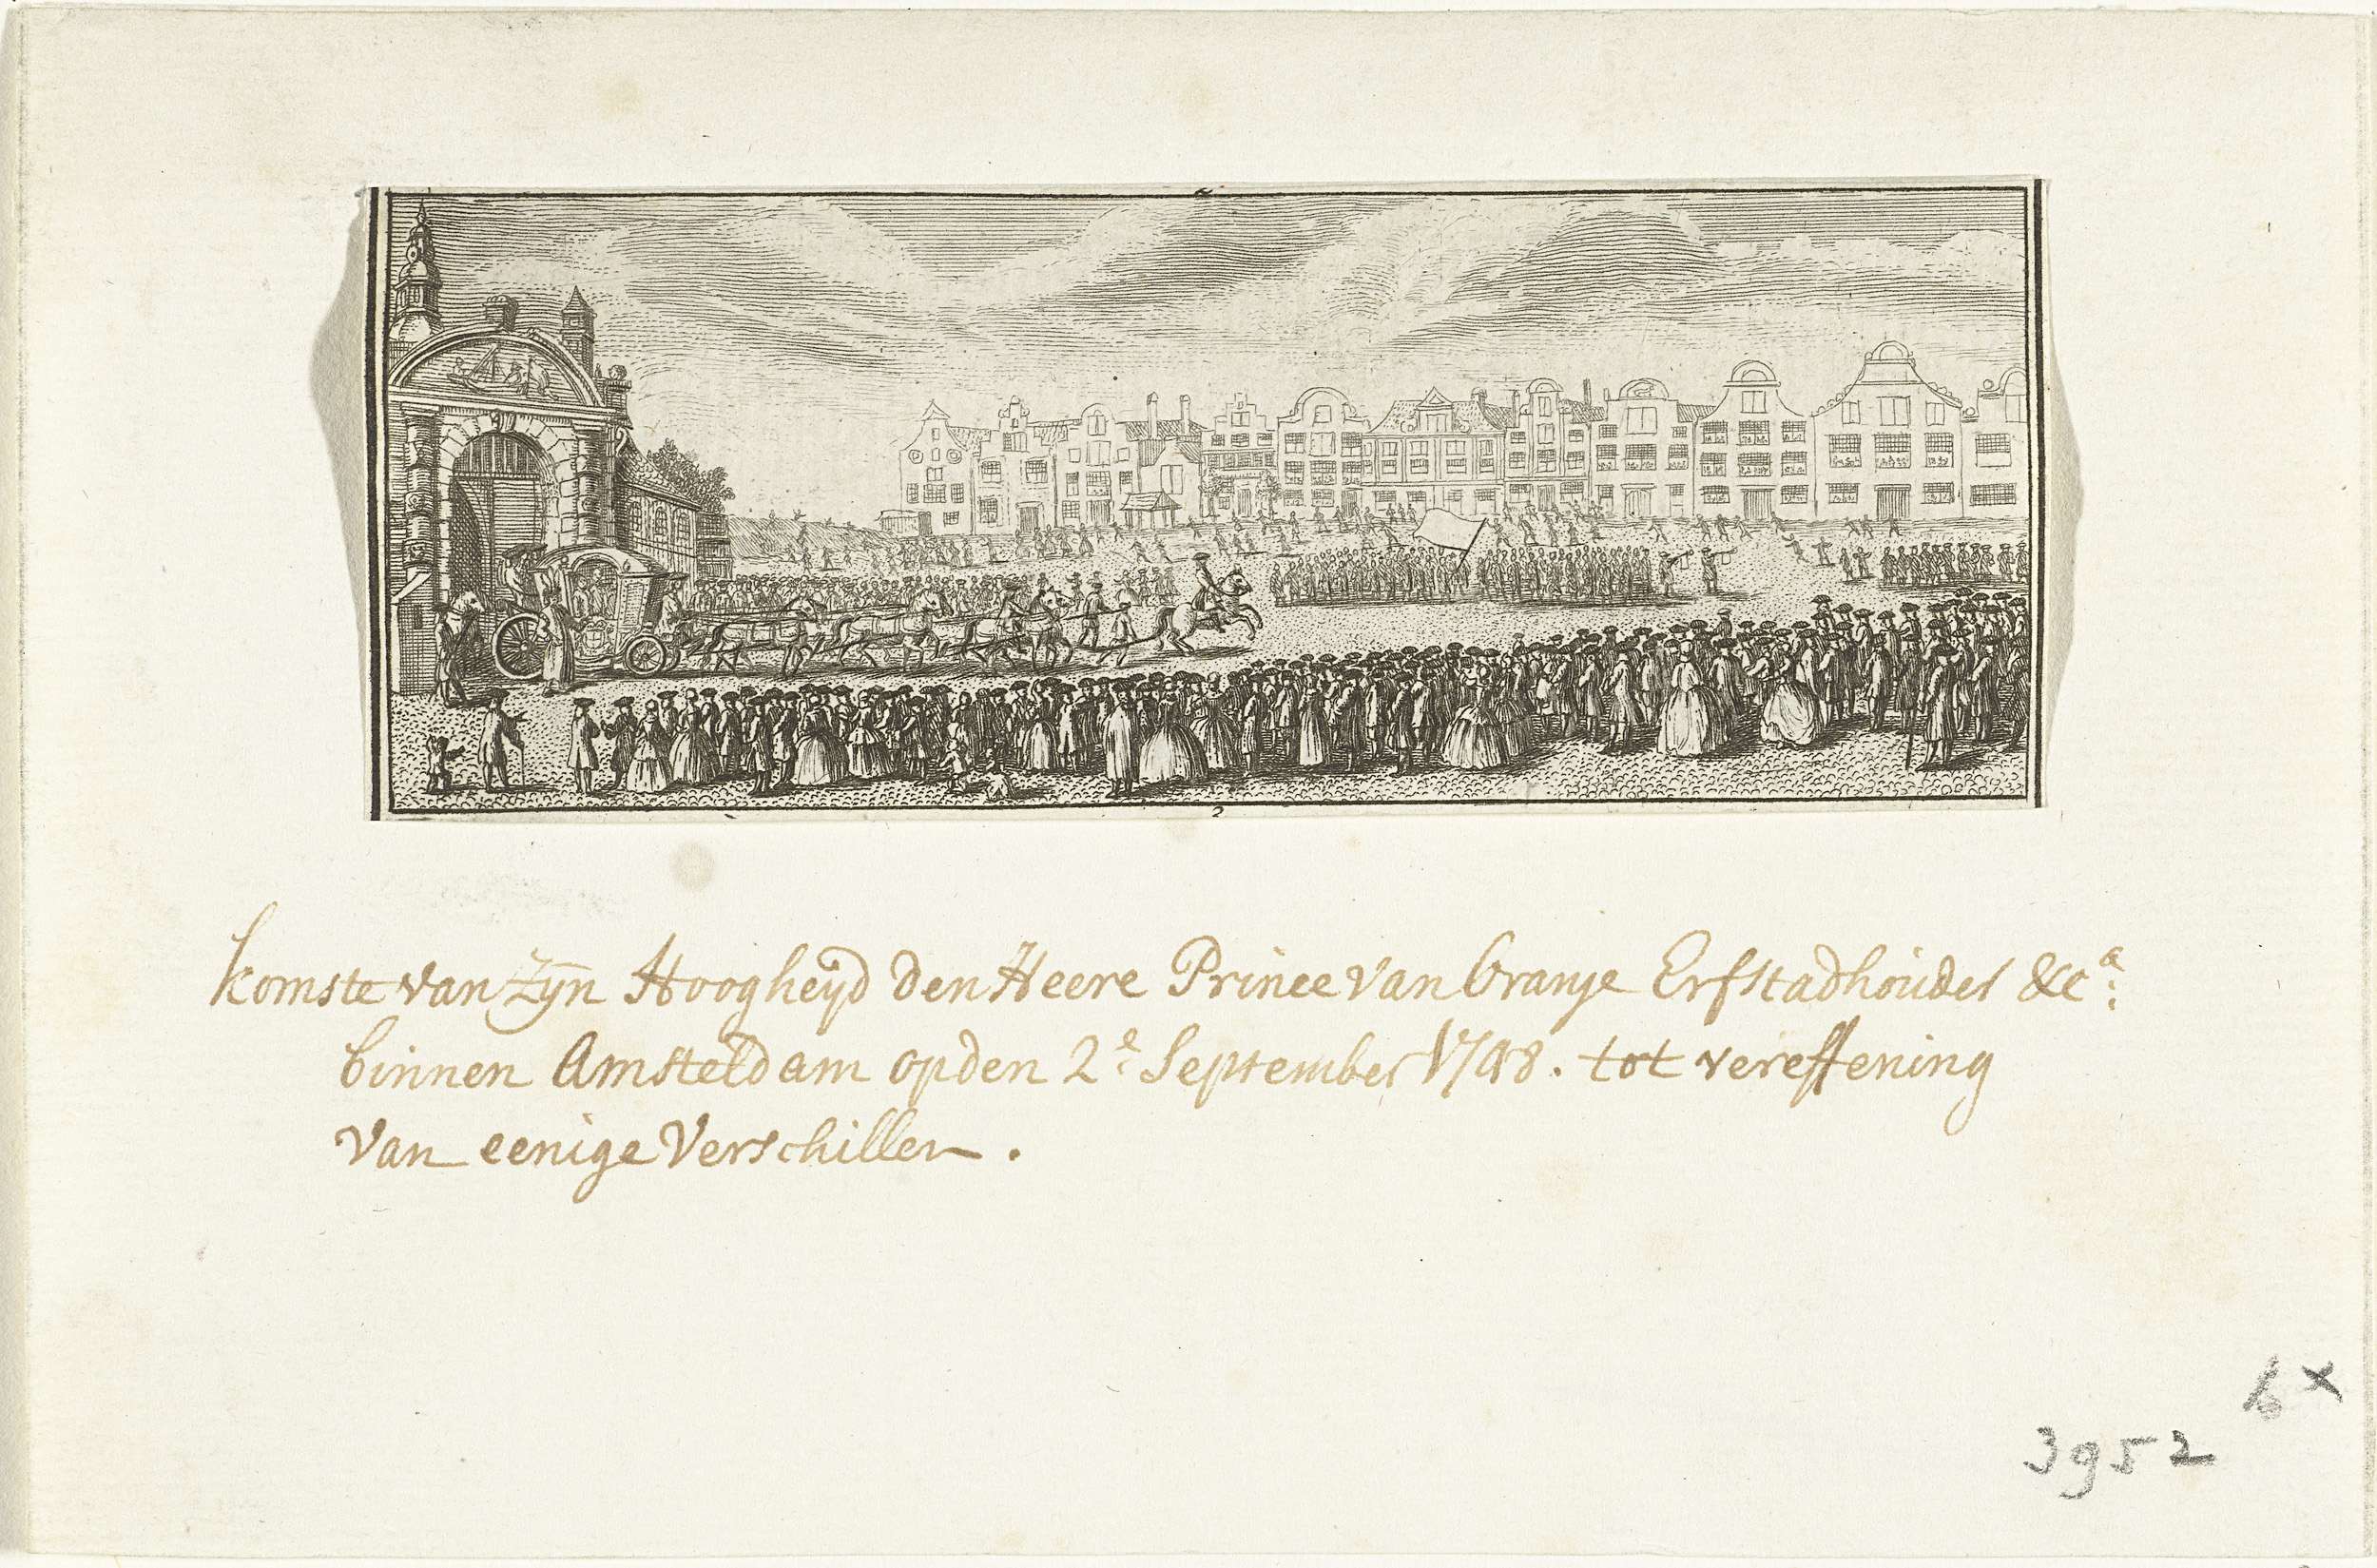 2
komste van Zÿn Hoogheÿd den Heere Prince van Oranje Erfstadhouder &c.ᵃ
binnen Amsteldam op den 2.ᵉ September 1748. tot vereffening
van eenige Verschillen.
b x
3952